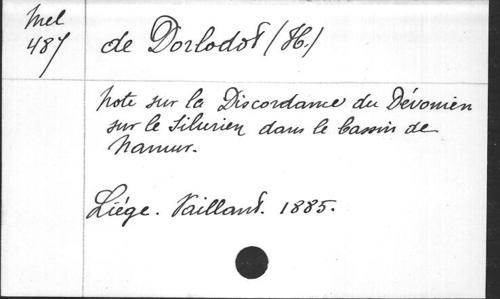 Mel
487
de Dorlodot (H.)
Note sur la Discordance du Dévonien
sur le Silurien dans le bassin de
Namur.
Liége. Vaillant. 1885.